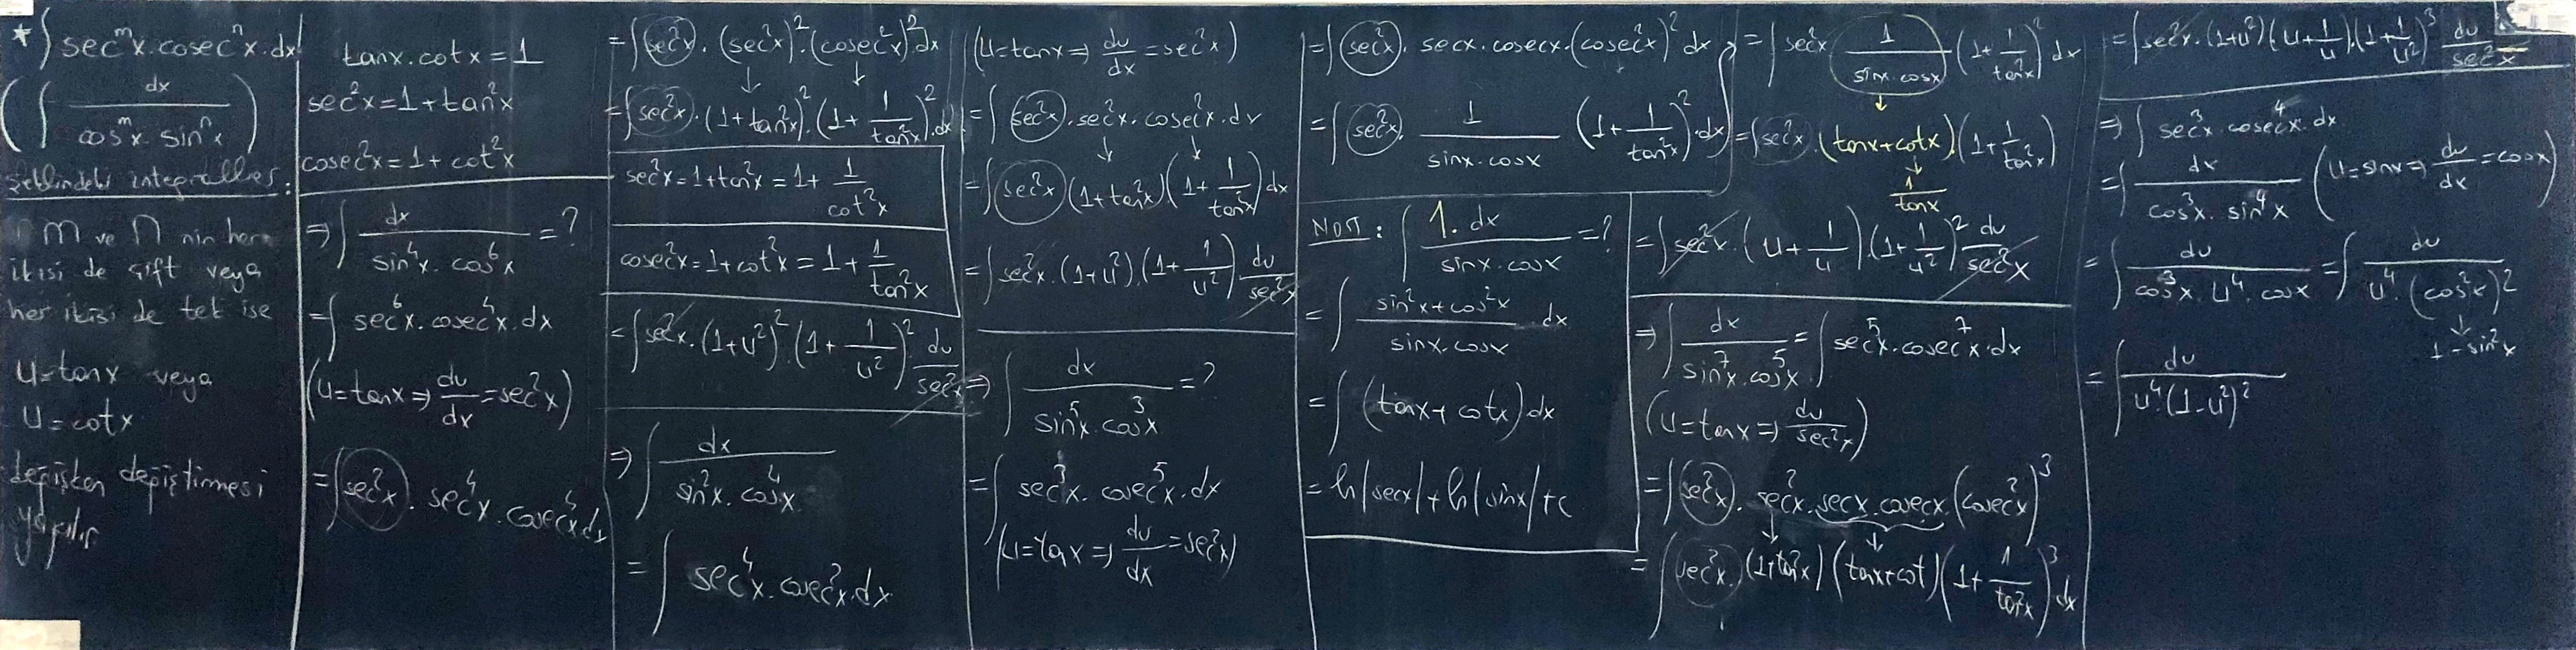 * ∫ secᵐx.cosecⁿx.dx
( ∫ dx / (cosᵐx.sinⁿx) )
şeklindeki integraller:
m ve n nin her
ikisi de çift veya
her ikisi de tek ise
u=tanx veya
u=cotx
değişken değiştirmesi
yapılır
tanx.cotx=1
sec²x=1+tan²x
cosec²x=1+cot²x
⇒ ∫ dx / (sin⁴x.cos⁶x) =?
= ∫ sec⁶x.cosec⁴x.dx
(u=tanx ⇒ du/dx = sec²x)
= ∫ sec²x.sec⁴x.cosec⁴x.dx
= ∫ sec²x.(sec²x)².(cosec²x)² dx
= ∫ sec²x.(1+tan²x)².(1+ 1/tan²x)².dx
sec²x=1+tan²x=1+ 1/cot²x
cosec²x=1+cot²x=1+ 1/tan²x
= ∫ sec²x.(1+u²)².(1+ 1/u²)². du/sec²x
⇒ ∫ dx / (sin²x.cos⁴x)
= ∫ sec⁴x.cosec²x.dx
(u=tanx ⇒ du/dx = sec²x)
= ∫ sec²x.sec²x.cosec²x.dx
= ∫ sec²x (1+tan²x).(1+ 1/tan²x) dx
= ∫ sec²x.(1+u²).(1+ 1/u²). du/sec²x
⇒ ∫ dx / (sin⁵x.cos³x) =?
= ∫ sec³x.cosec⁵x.dx
(u=tanx ⇒ du/dx = sec²x)
= ∫ sec²x.secx.cosecx.(cosec²x)² dx
= ∫ sec²x. 1/(sinx.cosx) (1+ 1/tan²x)².dx
NOT: ∫ 1.dx / (sinx.cosx) =?
= ∫ (sin²x+cos²x) / (sinx.cosx) dx
= ∫ (tanx+cotx) dx
= ln|secx|+ln|sinx|+c
= ∫ sec²x. 1/(sinx.cosx) (1+ 1/tan²x)² dx
= ∫ sec²x.(tanx+cotx).(1+ 1/tan²x)
1/tanx
= ∫ sec²x.(u+ 1/u).(1+ 1/u²)² du/sec²x
⇒ ∫ dx / (sin⁷x.cos⁵x) = ∫ sec⁵x.cosec⁷x.dx
(u=tanx ⇒ du/sec²x)
= ∫ sec²x.sec²x.secx.cosecx.(cosec²x)³
= ∫ sec²x.(1+tan²x)(tanx+cot)(1+ 1/tan²x)³ dx
= ∫ sec²x.(1+u²)(u+ 1/u).(1+ 1/u²)³ du/sec²x
⇒ ∫ sec³x.cosec⁴x.dx
= ∫ dx / (cos³x.sin⁴x) (u=sinx ⇒ du/dx = cosx)
= ∫ du / (cos³x.u⁴.cosx) = ∫ du / (u⁴.(cos²x)²)
1-sin²x
= ∫ du / (u⁴.(1-u²)²)